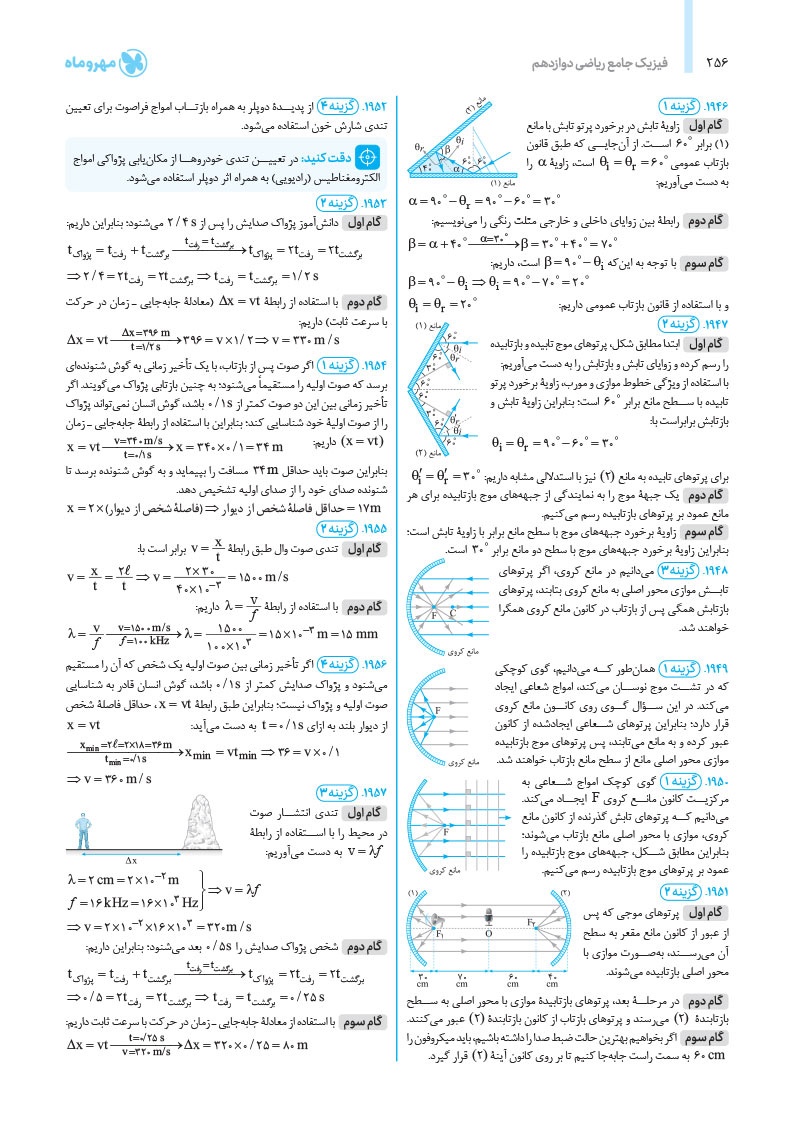 ۲۵۶
فیزیک جامع ریاضی دوازدهم
مهروماه
۱۹۴۶. گزینه ۱
گام اول زاویهٔ تابش در برخورد پرتو تابش با مانع
(۱) برابر ۶۰° اســت. از آن‌جایــی که طبق قانون
بازتاب عمومی θi = θr = ۶۰° است، زاویهٔ α را
به دست می‌آوریم:
α = ۹۰° − θr = ۹۰° − ۶۰° = ۳۰°
مانع (۲)
θr
θi
β
۴۰°
α
۶۰° ۶۰°
مانع (۱)
گام دوم رابطهٔ بین زوایای داخلی و خارجی مثلث رنگی را می‌نویسیم:
β = α + ۴۰° —α=۳۰°→ β = ۳۰° + ۴۰° = ۷۰°
گام سوم با توجه به این‌که β = ۹۰° − θi است، داریم:
β = ۹۰° − θi ⇒ θi = ۹۰° − ۷۰° = ۲۰°
و با استفاده از قانون بازتاب عمومی داریم: θi = θr = ۲۰°
۱۹۴۷. گزینه ۲
گام اول ابتدا مطابق شکل، پرتوهای موج تابیده و بازتابیده
را رسم کرده و زوایای تابش و بازتابش را به دست می‌آوریم:
با استفاده از ویژگی خطوط موازی و مورب، زاویهٔ برخورد پرتو
تابیده با ســطح مانع برابر ۶۰° است؛ بنابراین زاویهٔ تابش و
بازتابش برابراست با:
θi = θr = ۹۰° − ۶۰° = ۳۰°
مانع (۱)
۶۰°
θi
θr
۳۰°
۶۰°
۶۰°
۳۰°
θ′r
θ′i
۶۰°
مانع (۲)
برای پرتوهای تابیده به مانع (۲) نیز با استدلالی مشابه داریم: θ′i = θ′r = ۳۰°
گام دوم یک جبههٔ موج را به نمایندگی از جبهه‌های موج بازتابیده برای هر
مانع عمود بر پرتوهای بازتابیده رسم می‌کنیم.
گام سوم زاویهٔ برخورد جبهه‌های موج با سطح مانع برابر با زاویهٔ تابش است؛
بنابراین زاویهٔ برخورد جبهه‌های موج با سطح دو مانع برابر ۳۰° است.
۱۹۴۸. گزینه ۳ می‌دانیم در مانع کروی، اگر پرتوهای
تابــش موازی محور اصلی به مانع کروی بتابند، پرتوهای
بازتابش همگی پس از بازتاب در کانون مانع کروی همگرا
خواهند شد.
F
C
مانع کروی
۱۹۴۹. گزینه ۱ همان‌طور کــه می‌دانیم، گوی کوچکی
که در تشــت موج نوســان می‌کند، امواج شعاعی ایجاد
می‌کند. در این ســؤال گــوی روی کانــون مانع کروی
قرار دارد؛ بنابراین پرتوهای شــعاعی ایجادشده از کانون
عبور کرده و به مانع می‌تابند، پس پرتوهای موج بازتابیده
موازی محور اصلی مانع از سطح مانع بازتاب خواهند شد.
F
مانع کروی
۱۹۵۰. گزینه ۱ گوی کوچک امواج شــعاعی به
مرکزیــت کانون مانــع کروی F ایجــاد می‌کند.
می‌دانیم کــه پرتوهای تابش گذرنده از کانون مانع
کروی، موازی با محور اصلی مانع بازتاب می‌شوند؛
بنابراین مطابق شــکل، جبهه‌های موج بازتابیده را
عمود بر پرتوهای موج بازتابیده رسم می‌کنیم.
F
مانع کروی
۱۹۵۱. گزینه ۲
گام اول پرتوهای موجی که پس
از عبور از کانون مانع مقعر به سطح
آن می‌رســند، به‌صــورت موازی با
محور اصلی بازتابیده می‌شوند.
(۱)
(۲)
F۱
O
F۲
۳۰ cm
۷۰ cm
۶۰ cm
۴۰ cm
گام دوم در مرحلــهٔ بعد، پرتوهای بازتابیدهٔ موازی با محور اصلی به ســطح
بازتابندهٔ (۲) می‌رسند و پرتوهای بازتاب از کانون بازتابندهٔ (۲) عبور می‌کنند.
گام سوم اگر بخواهیم بهترین حالت ضبط صدا را داشته باشیم، باید میکروفون را
۶۰ cm به سمت راست جابه‌جا کنیم تا بر روی کانون آینهٔ (۲) قرار گیرد.
۱۹۵۲. گزینه ۴ از پدیــدهٔ دوپلر به همراه بازتــاب امواج فراصوت برای تعیین
تندی شارش خون استفاده می‌شود.
دقت کنید: در تعییــن تندی خودروهــا از مکان‌یابی پژواکی امواج
الکترومغناطیس (رادیویی) به همراه اثر دوپلر استفاده می‌شود.
۱۹۵۳. گزینه ۲
گام اول دانش‌آموز پژواک صدایش را پس از ۲/۴ s می‌شنود؛ بنابراین داریم:
tپژواک = tرفت + tبرگشت —tرفت = tبرگشت→ tپژواک = ۲tرفت = ۲tبرگشت
⇒ ۲/۴ = ۲tرفت = ۲tبرگشت ⇒ tرفت = tبرگشت = ۱/۲ s
گام دوم با استفاده از رابطهٔ Δx = vt (معادلهٔ جابه‌جایی - زمان در حرکت
با سرعت ثابت) داریم:
Δx = vt —Δx=۳۹۶ m, t=۱/۲ s→ ۳۹۶ = v × ۱/۲ ⇒ v = ۳۳۰ m/s
۱۹۵۴. گزینه ۱ اگر صوت پس از بازتاب، با یک تأخیر زمانی به گوش شنونده‌ای
برسد که صوت اولیه را مستقیماً می‌شنود؛ به چنین بازتابی پژواک می‌گویند. اگر
تأخیر زمانی بین این دو صوت کمتر از ۰/۱ s باشد، گوش انسان نمی‌تواند پژواک
را از صوت اولیهٔ خود شناسایی کند؛ بنابراین با استفاده از رابطهٔ جابه‌جایی - زمان
(x = vt) داریم: x = vt —v=۳۴۰ m/s, t=۰/۱ s→ x = ۳۴۰ × ۰/۱ = ۳۴ m
بنابراین صوت باید حداقل ۳۴ m مسافت را بپیماید و به گوش شنونده برسد تا
شنونده صدای خود را از صدای اولیه تشخیص دهد.
x = ۲ × (فاصلهٔ شخص از دیوار) ⇒ حداقل فاصلهٔ شخص از دیوار = ۱۷ m
۱۹۵۵. گزینه ۲
گام اول تندی صوت وال طبق رابطهٔ v = x/t برابر است با:
v = x/t = ۲ℓ/t ⇒ v = ۲×۳۰ / ۴۰×۱۰⁻³ = ۱۵۰۰ m/s
گام دوم با استفاده از رابطهٔ λ = v/f داریم:
λ = v/f —v=۱۵۰۰ m/s, f=۱۰۰ kHz→ λ = ۱۵۰۰ / ۱۰۰×۱۰³ = ۱۵×۱۰⁻³ m = ۱۵ mm
۱۹۵۶. گزینه ۴ اگر تأخیر زمانی بین صوت اولیه یک شخص که آن را مستقیم
می‌شنود و پژواک صدایش کمتر از ۰/۱ s باشد، گوش انسان قادر به شناسایی
صوت اولیه و پژواک نیست؛ بنابراین طبق رابطهٔ x = vt ، حداقل فاصلهٔ شخص
از دیوار بلند به ازای t = ۰/۱ s به دست می‌آید: x = vt
—xmin=۲ℓ=۲×۱۸=۳۶ m, tmin=۰/۱ s→ xmin = vtmin ⇒ ۳۶ = v × ۰/۱
⇒ v = ۳۶۰ m/s
۱۹۵۷. گزینه ۳
گام اول تندی انتشــار صوت
در محیط را با اســتفاده از رابطهٔ
v = λf به دست می‌آوریم:
Δx
λ = ۲ cm = ۲×۱۰⁻² m
f = ۱۶ kHz = ۱۶×۱۰³ Hz } ⇒ v = λf
⇒ v = ۲×۱۰⁻²×۱۶×۱۰³ = ۳۲۰ m/s
گام دوم شخص پژواک صدایش را ۰/۵ s بعد می‌شنود؛ بنابراین داریم:
tپژواک = tرفت + tبرگشت —tرفت = tبرگشت→ tپژواک = ۲tرفت = ۲tبرگشت
⇒ ۰/۵ = ۲tرفت = ۲tبرگشت ⇒ tرفت = tبرگشت = ۰/۲۵ s
گام سوم با استفاده از معادلهٔ جابه‌جایی - زمان در حرکت با سرعت ثابت داریم:
Δx = vt —t=۰/۲۵ s, v=۳۲۰ m/s→ Δx = ۳۲۰ × ۰/۲۵ = ۸۰ m